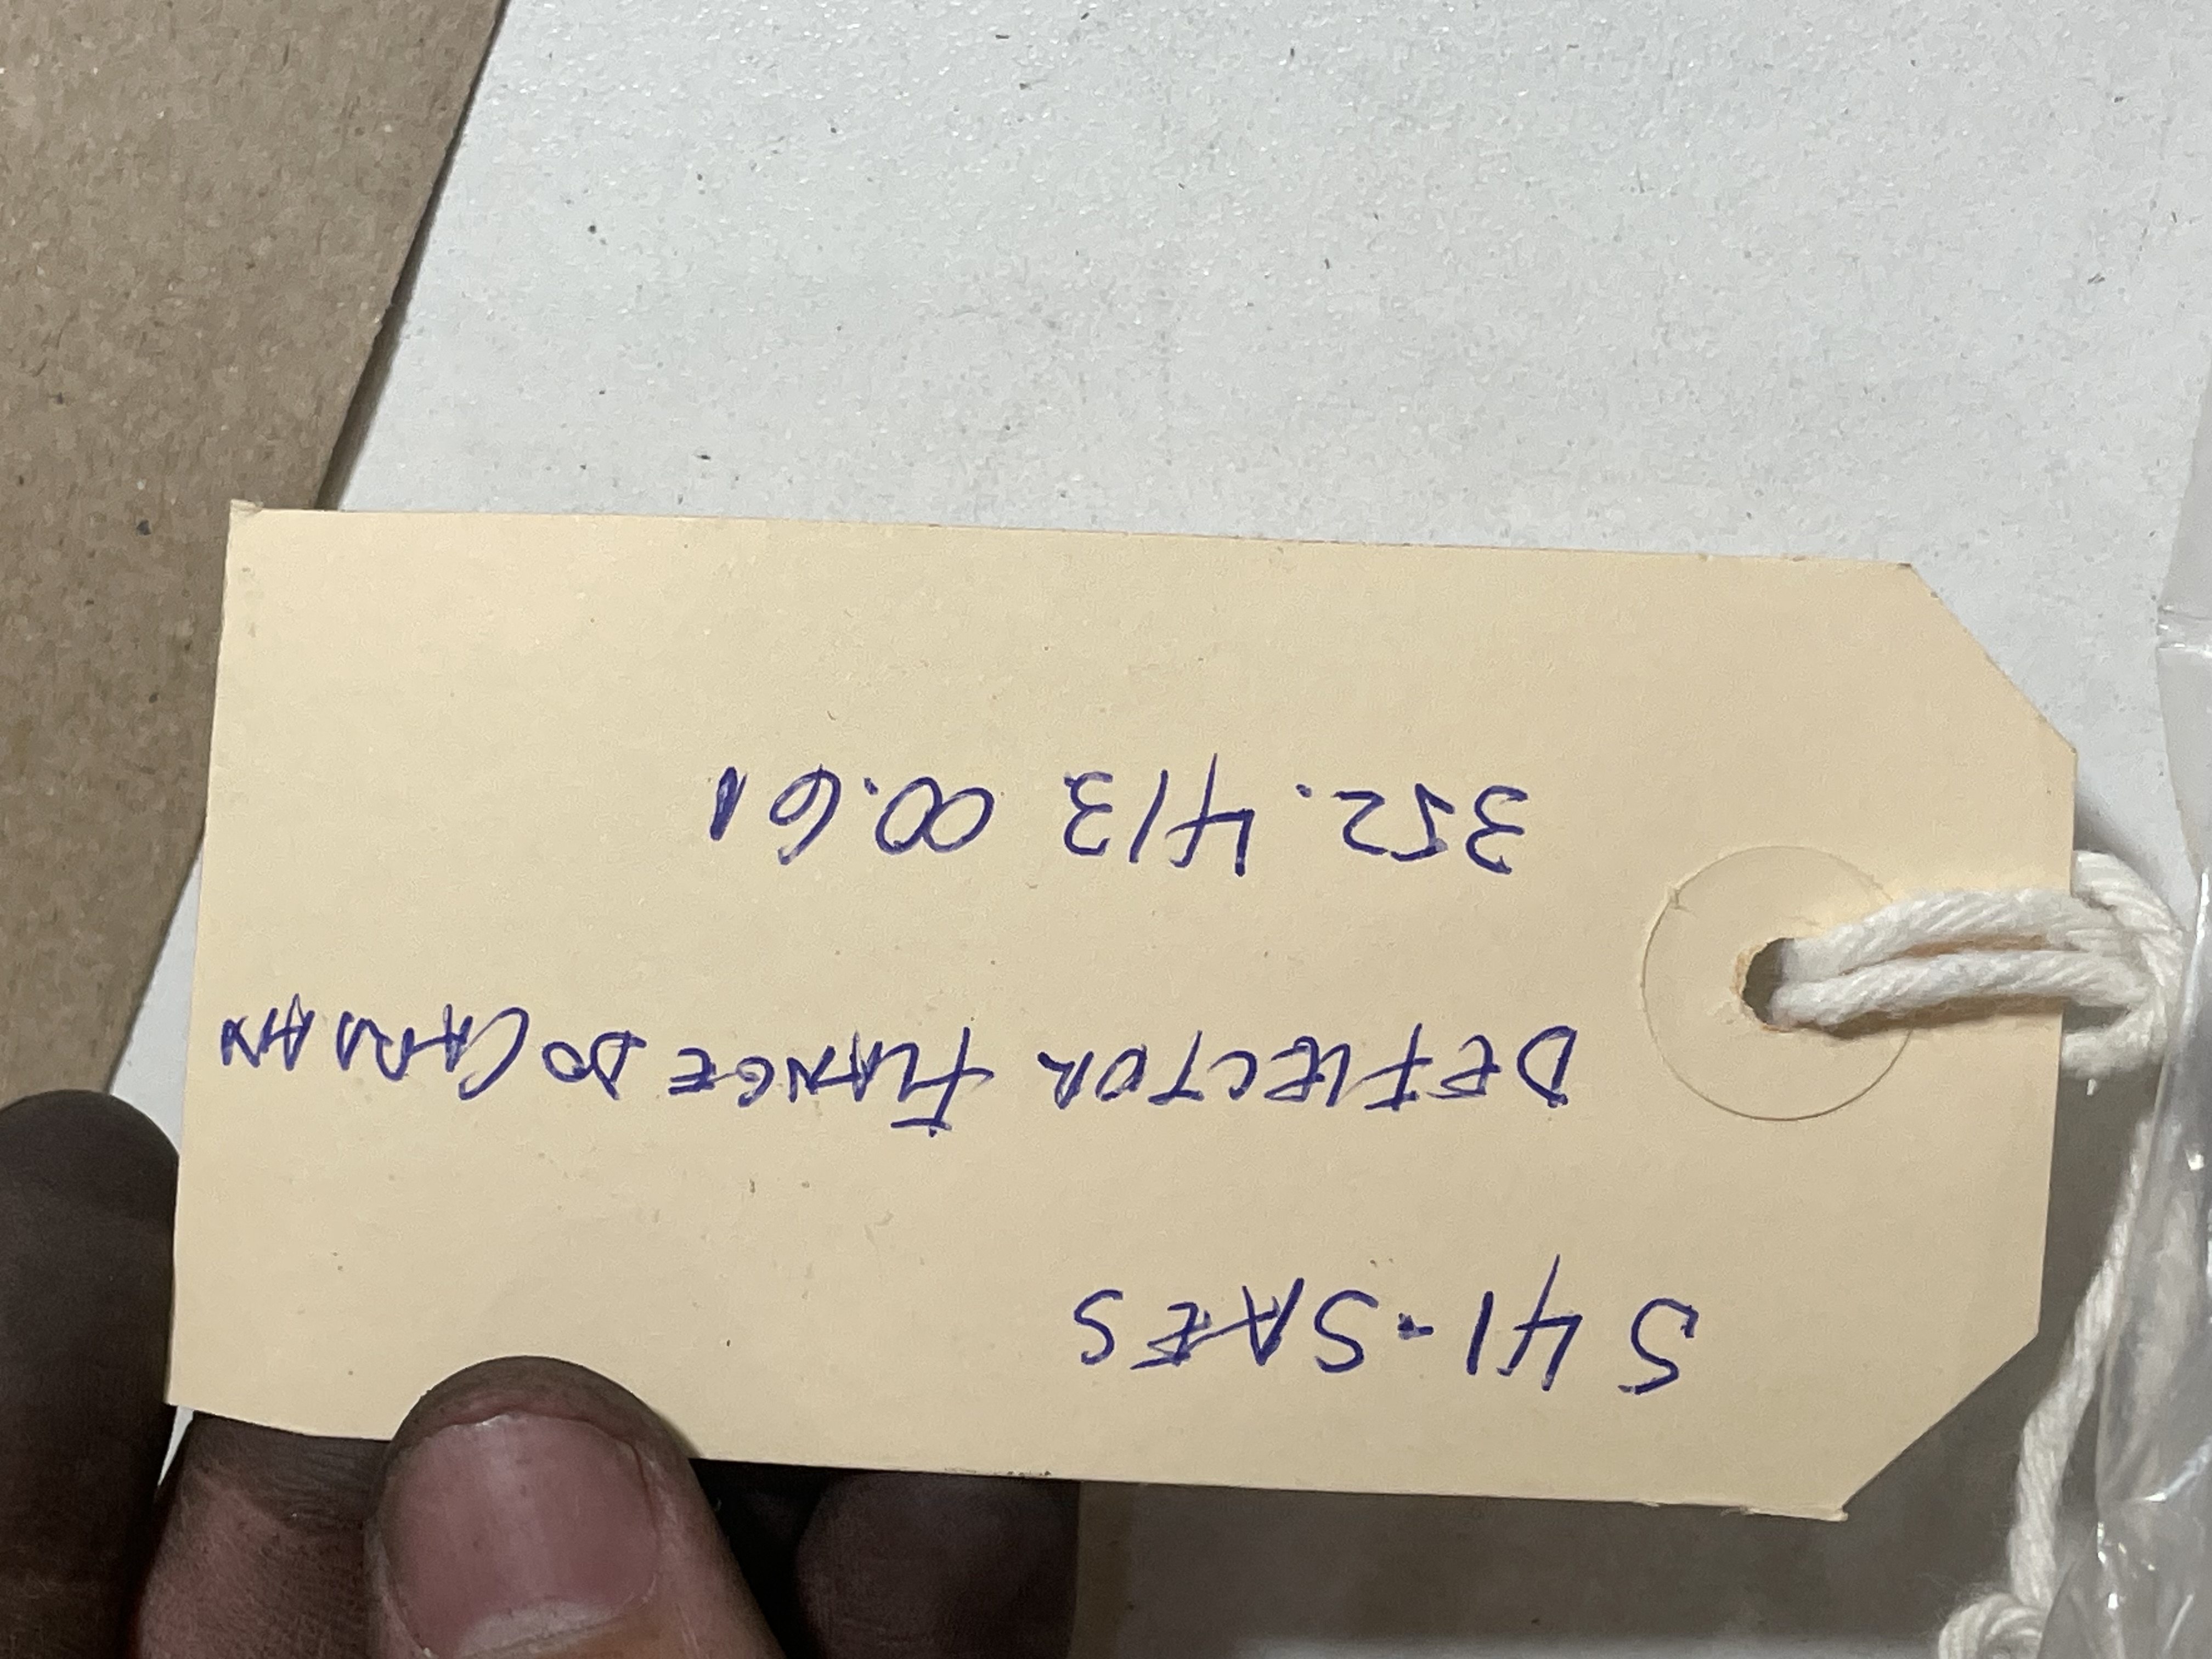 541 - SAES
DEFLECTOR FLANGE DO CARDAN
352.413 00.61